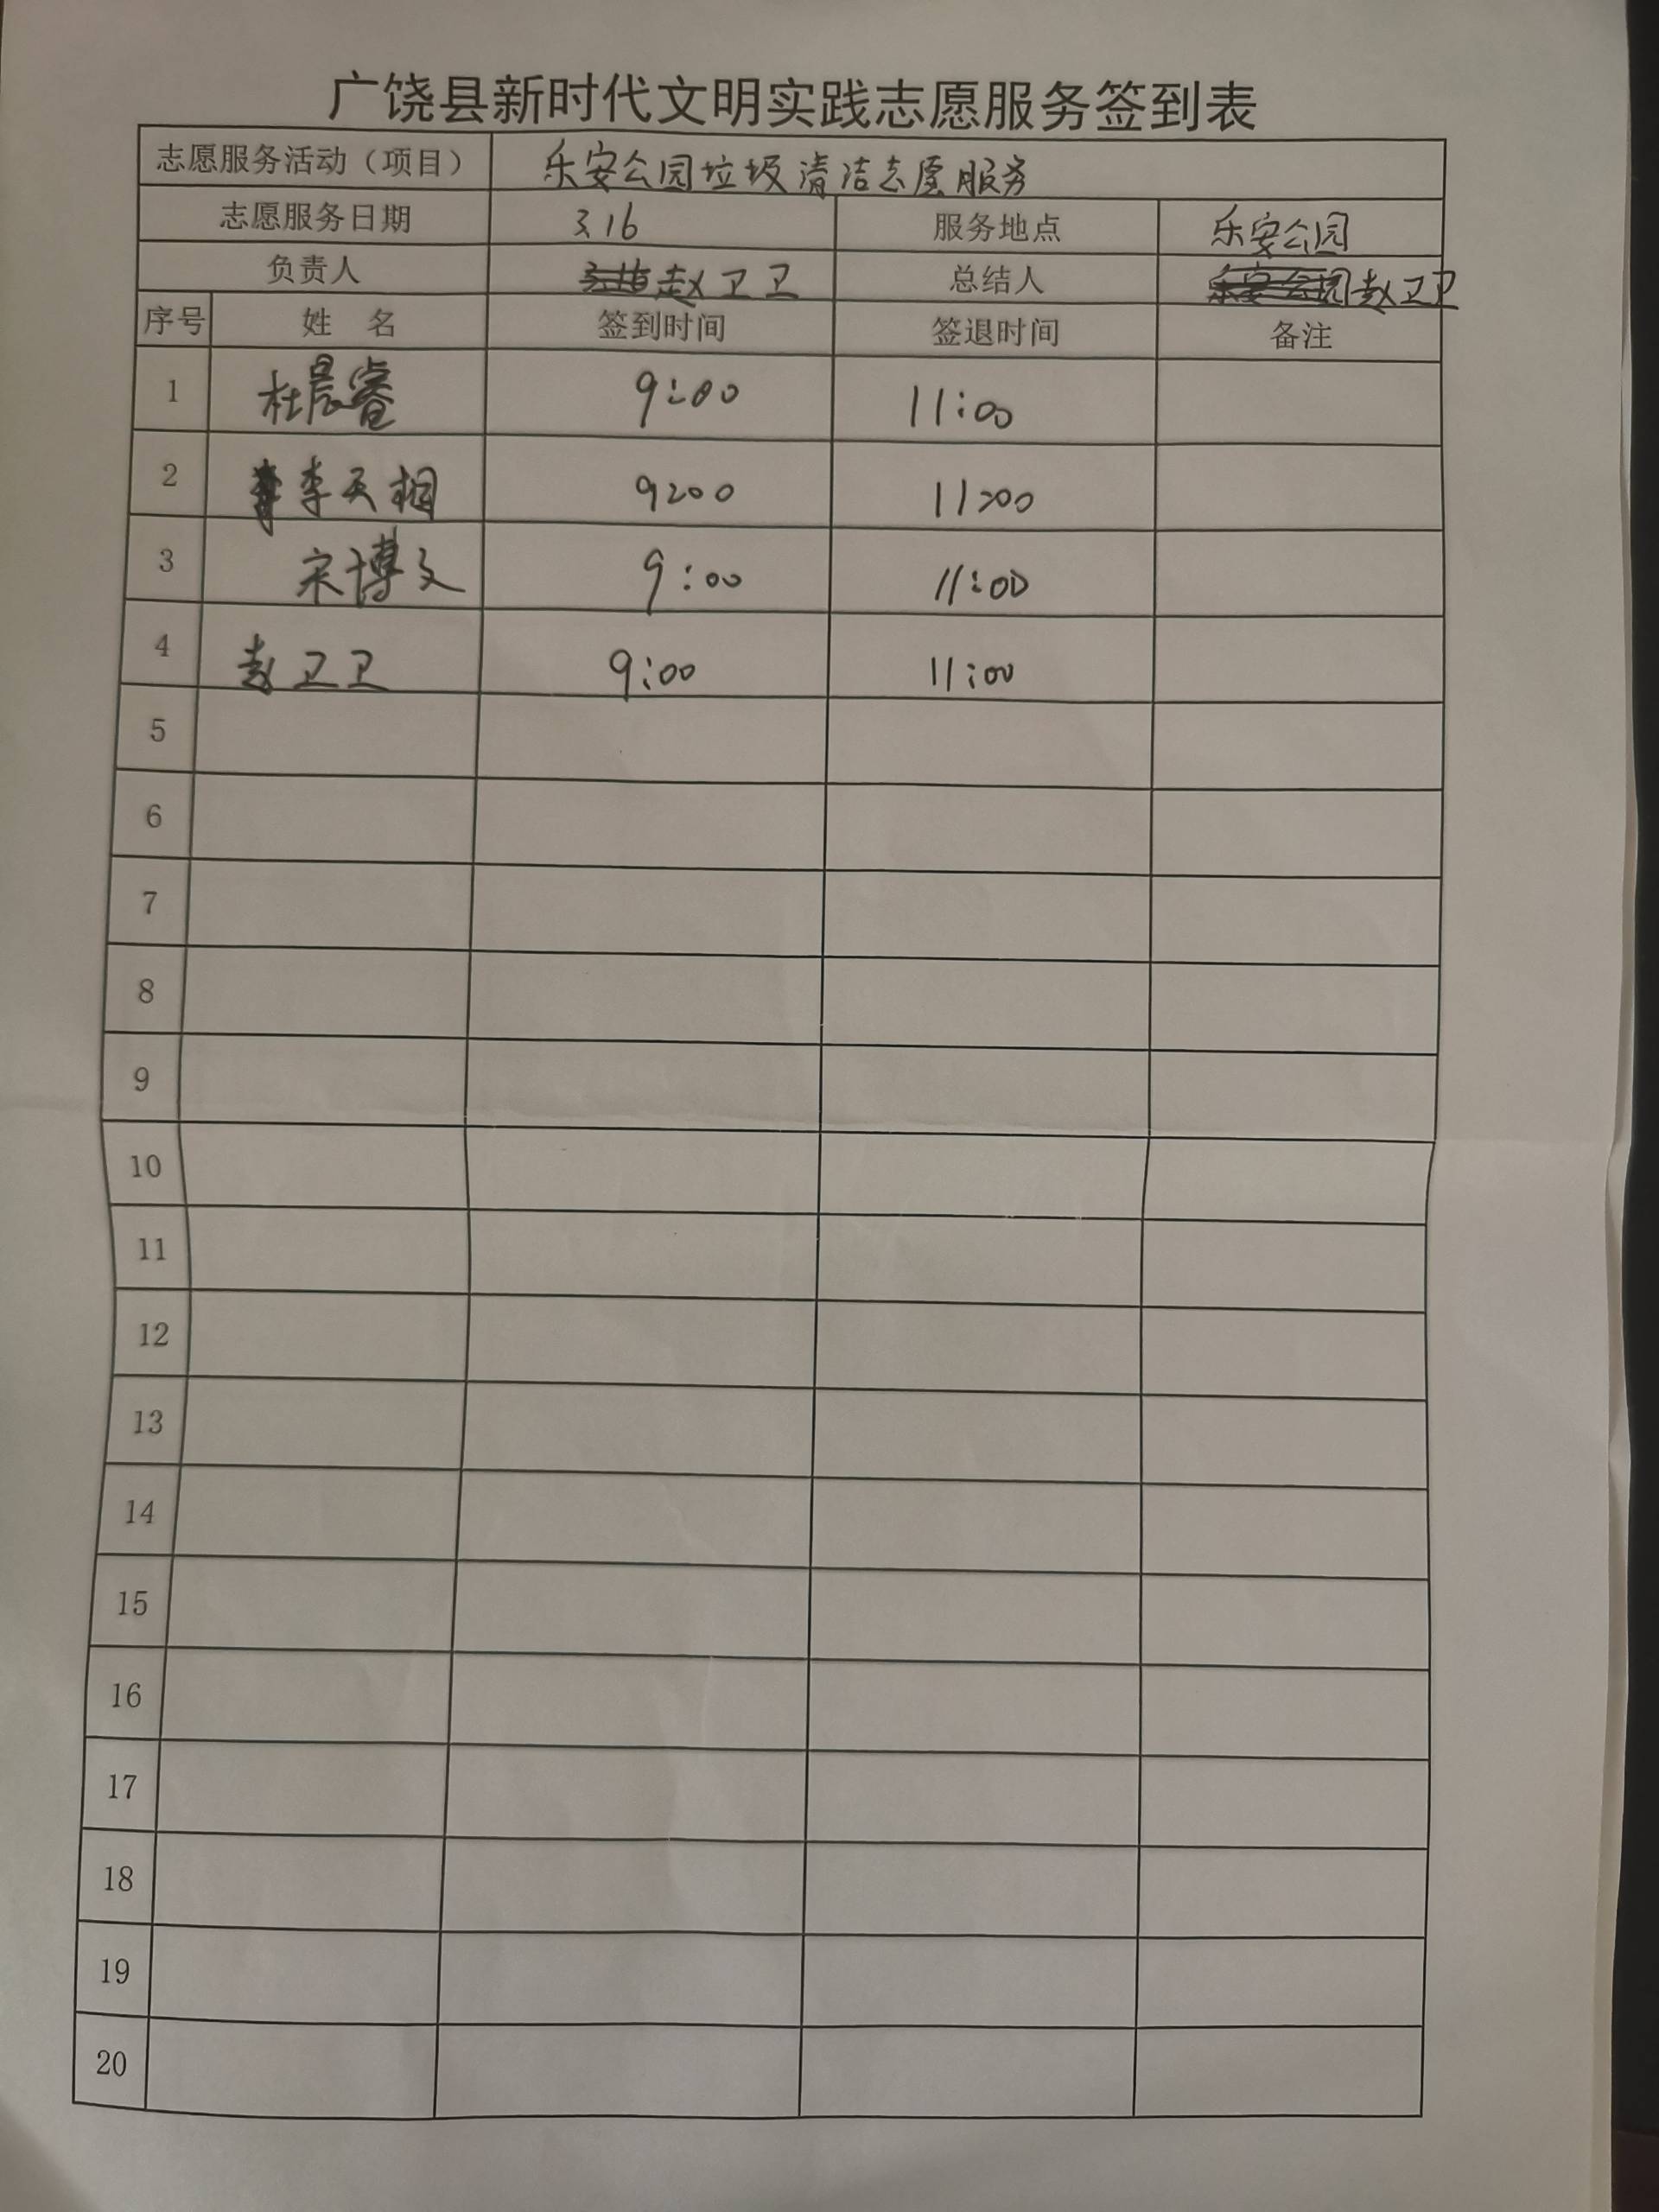 广饶县新时代文明实践志愿服务签到表
志愿服务活动（项目） 乐安公园垃圾清洁志愿服务
志愿服务日期 3.16 服务地点 乐安公园
负责人 赵卫卫 总结人 赵卫卫
序号 姓 名 签到时间 签退时间 备注
1 杜晨睿 9:00 11:00
2 李天相 9:00 11:00
3 宋博文 9:00 11:00
4 赵卫卫 9:00 11:00
5
6
7
8
9
10
11
12
13
14
15
16
17
18
19
20